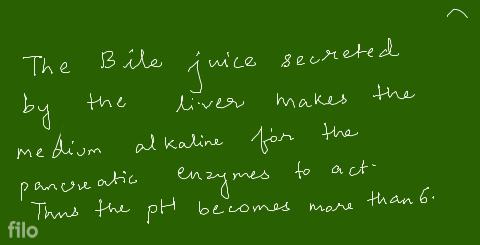 The Bile juice secreted
by the liver makes the
medium alkaline for the
pancreatic enzymes to act.
Thus the pH becomes more than 6.
filo